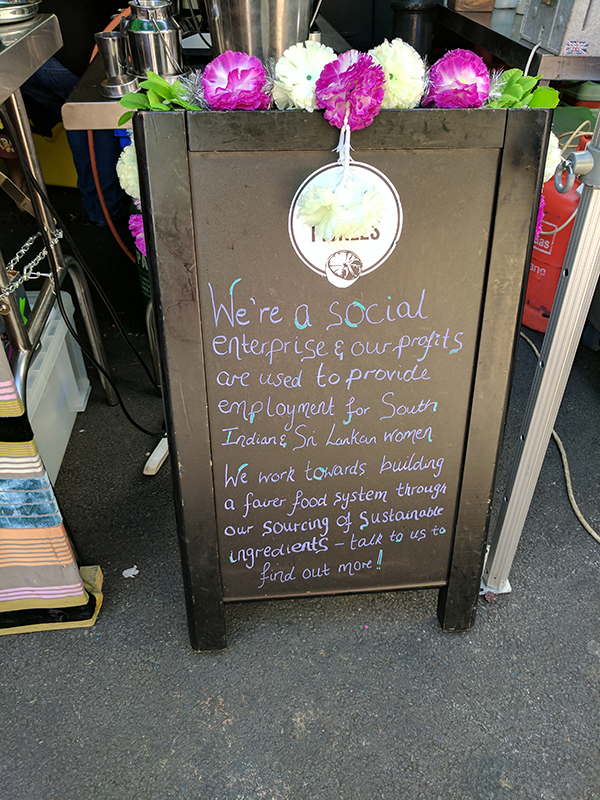 We're a social
enterprise & our profits
are used to provide
employment for South
Indian & Sri Lankan women
We work towards building
a fairer food system through
our sourcing of sustainable
ingredients - talk to us to
find out more!